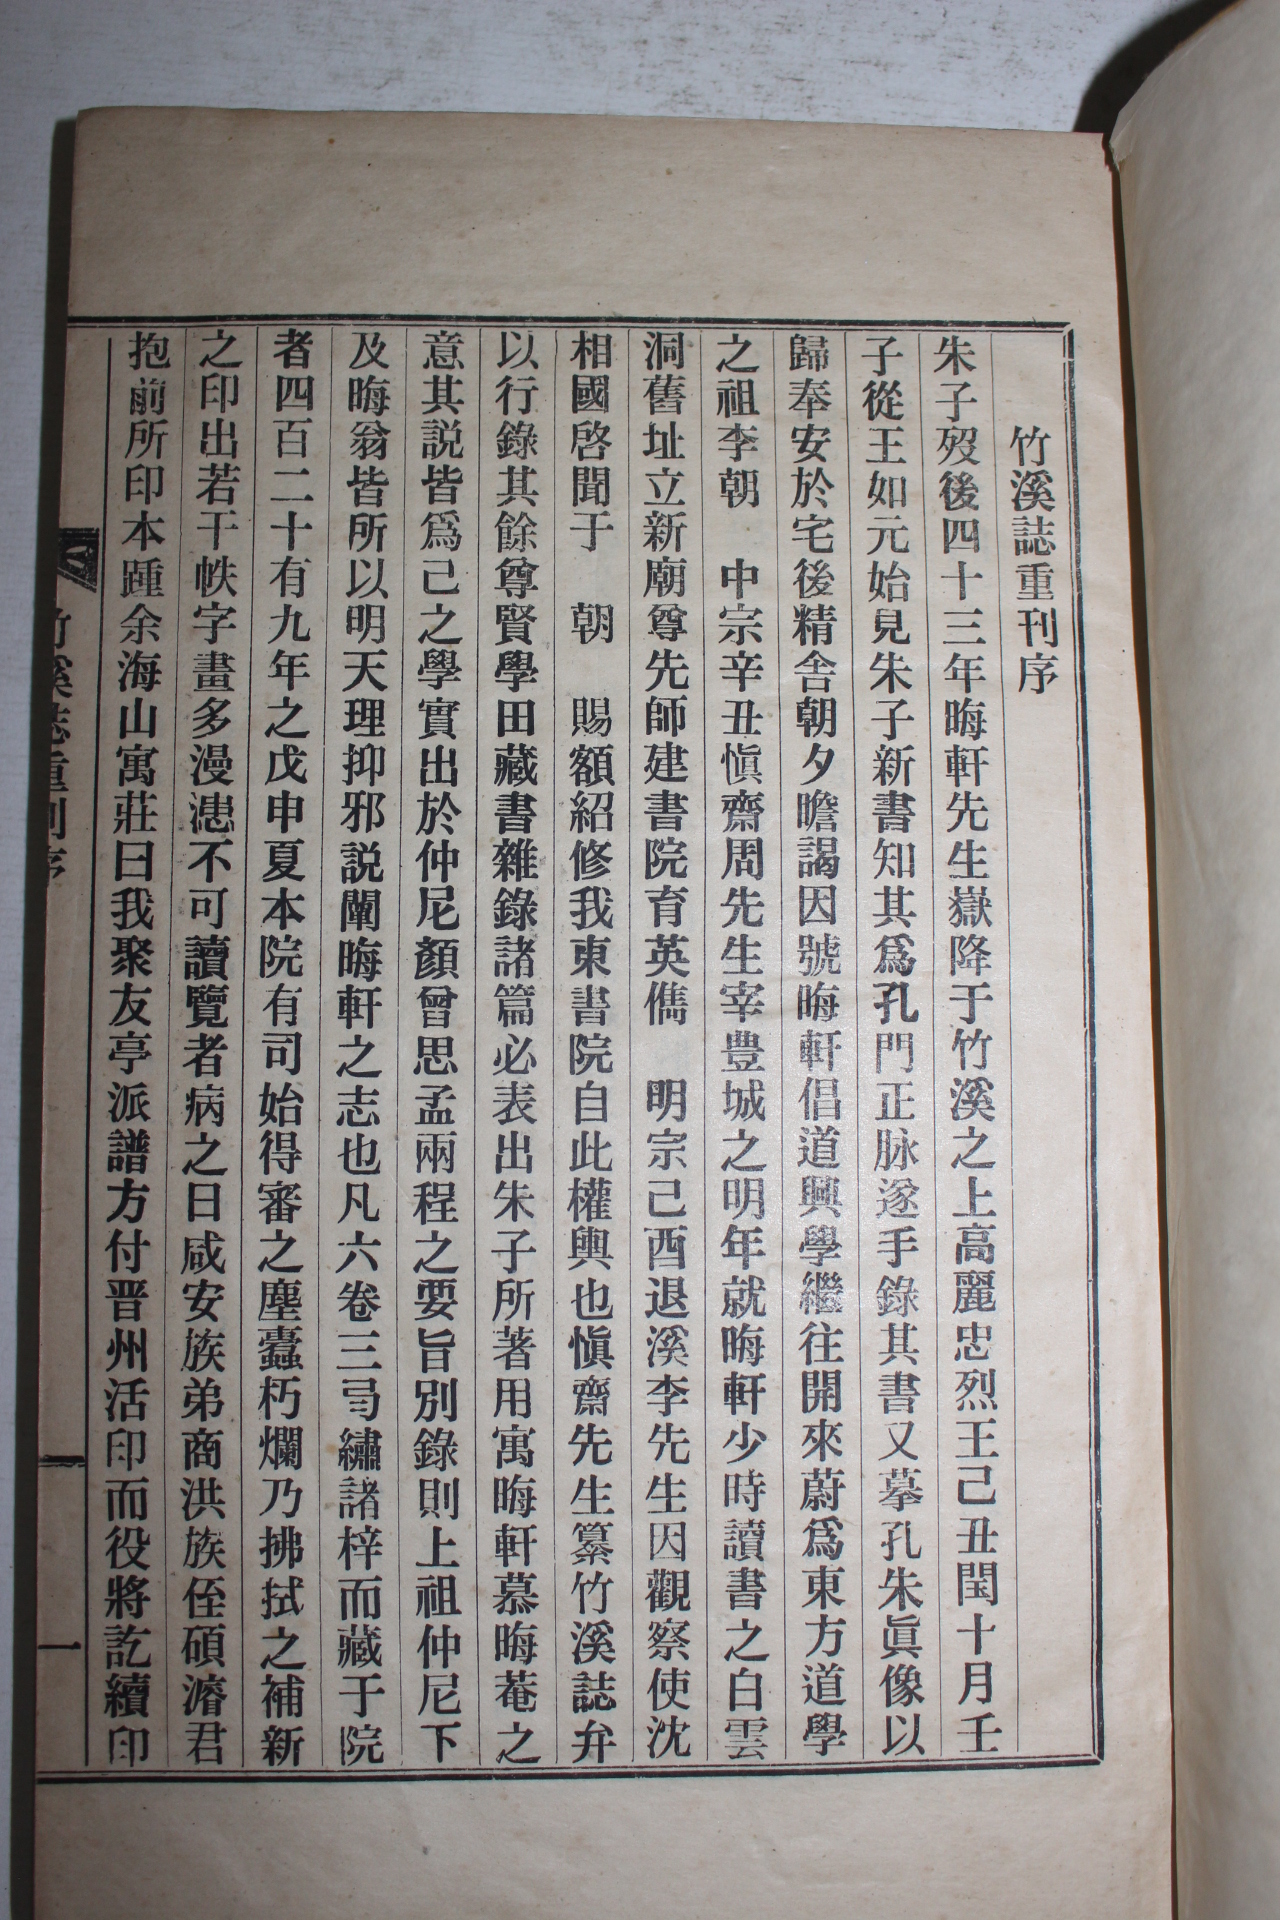 竹溪誌重刊序
朱子歿後四十三年晦軒先生嶽降于竹溪之上高麗忠烈王己丑閏十月壬
子從王如元始見朱子新書知其爲孔門正脉遂手錄其書又摹孔朱眞像以
歸奉安於宅後精舍朝夕瞻謁因號晦軒倡道興學繼往開來蔚爲東方道學
之祖李朝 中宗辛丑愼齋周先生宰豊城之明年就晦軒少時讀書之白雲
洞舊址立新廟尊先師建書院育英儁 明宗己酉退溪李先生因觀察使沈
相國啓聞于 朝 賜額紹修我東書院自此權輿也愼齋先生纂竹溪誌弁
以行錄其餘尊賢學田藏書雜錄諸篇必表出朱子所著用寓晦軒慕晦菴之
意其説皆爲己之學實出於仲尼顏曾思孟兩程之要旨別錄則上祖仲尼下
及晦翁皆所以明天理抑邪説闡晦軒之志也凡六卷三弓繡諸梓而藏于院
者四百二十有九年之戊申夏本院有司始得審之塵蠹朽爛乃拂拭之補新
之印出若干帙字畫多漫漶不可讀覽者病之日咸安族弟商洪族侄碩濬君
抱前所印本踵余海山寓莊曰我聚友亭派譜方付晋州活印而役將訖續印
竹溪誌重刊序
一